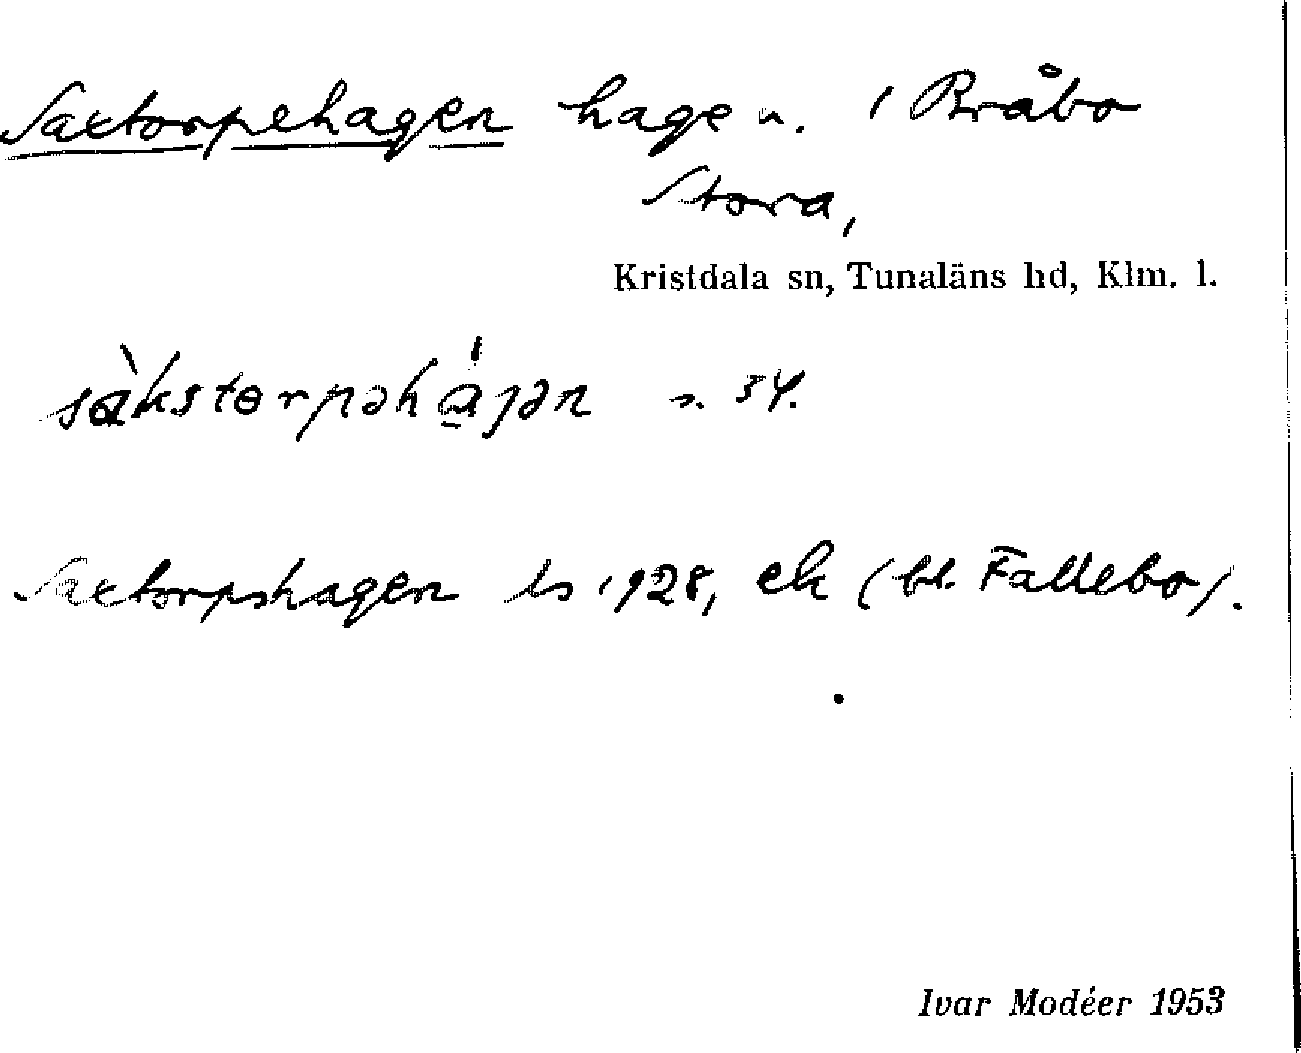 Saxtorpehagen hage n. i Bråbo
Stora,
Kristdala sn, Tunaläns hd, Klm. l.
sàkstɵrpəhá̱jən s. 34.
Saxtorpshagen ls 1928, ek (bl. Fallebo).
Ivar Modéer 1953